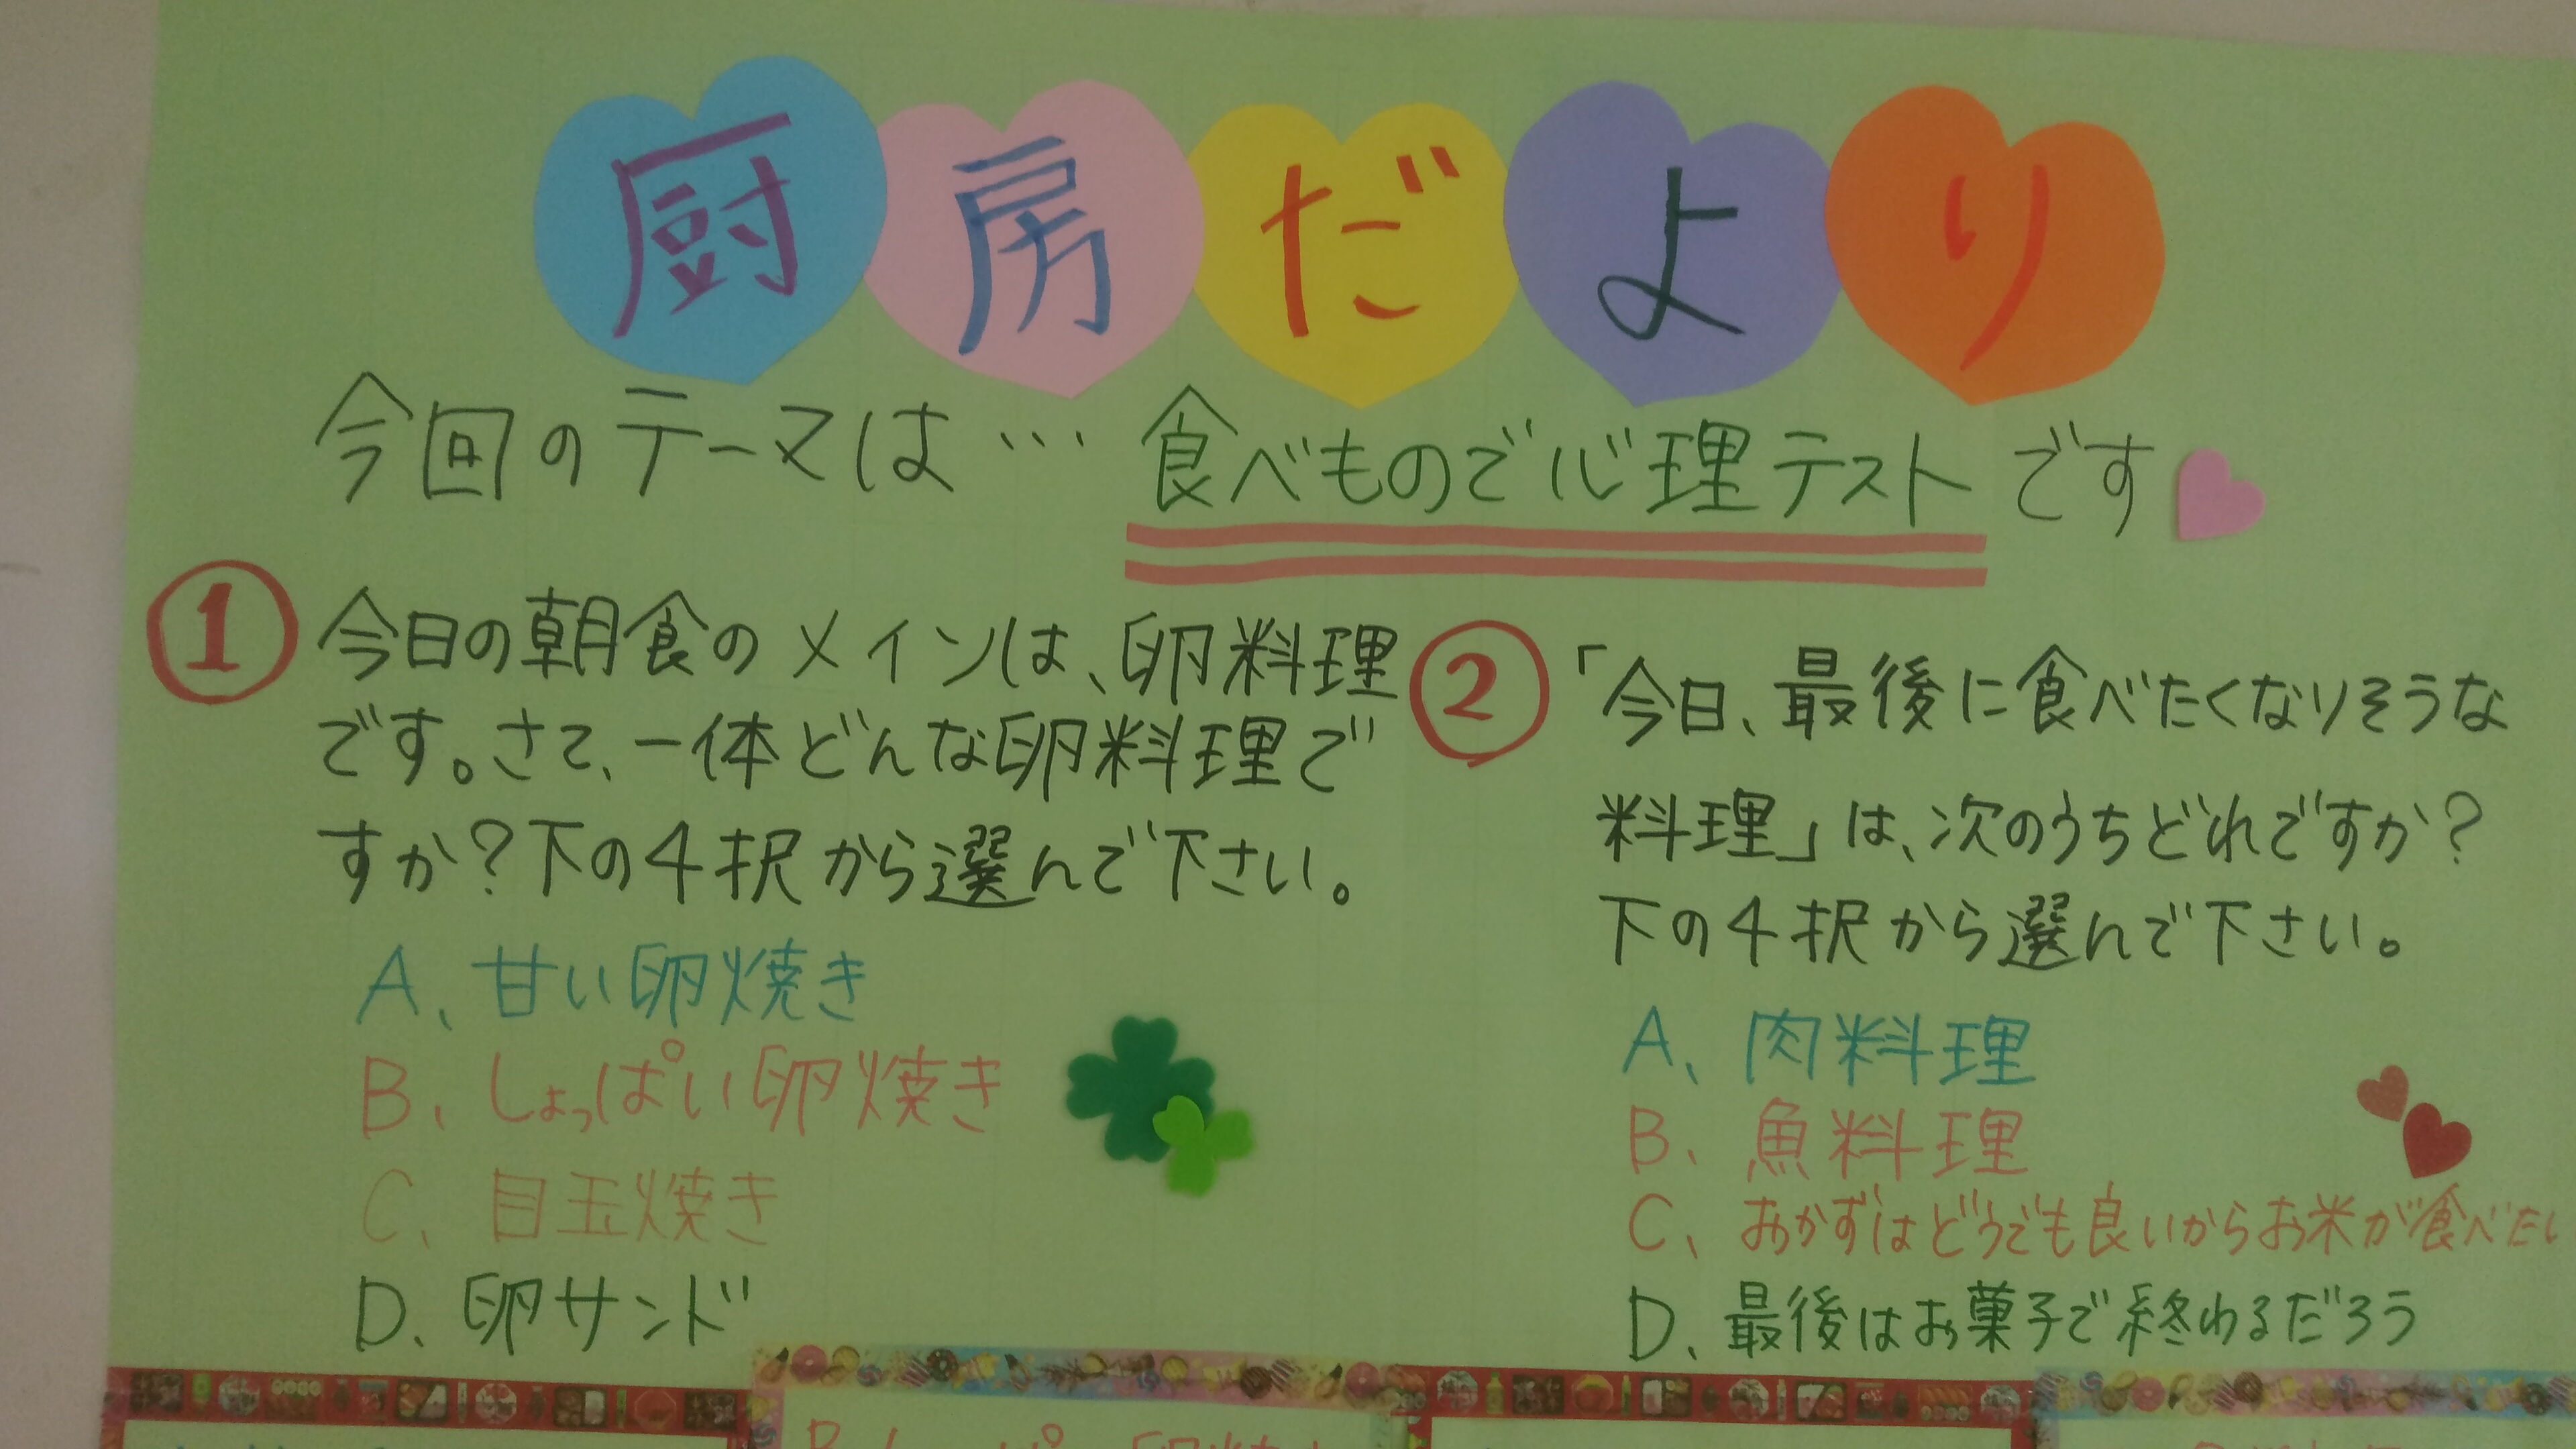 厨房だより
今回のテーマは… 食べもので心理テストです
1
今日の朝食のメインは、卵料理
です。さて、一体どんな卵料理で
すか？下の4択から選んで下さい。
A、甘い卵焼き
B、しょっぱい卵焼き
C、目玉焼き
D、卵サンド
2
「今日、最後に食べたくなりそうな
料理」は、次のうちどれですか？
下の4択から選んで下さい。
A、肉料理
B、魚料理
C、おかずはどうでも良いからお米が食べたい
D、最後はお菓子で終わるだろう